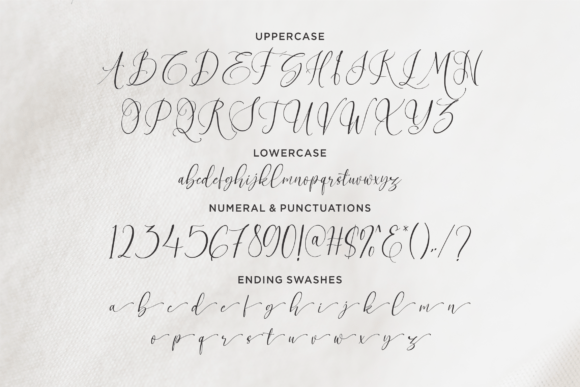 UPPERCASE
ABCDEFGHIJKLMN
OPQRSTUVWXYZ
LOWERCASE
abcdefghijklmnopqrstuvwxyz
NUMERAL & PUNCTUATIONS
1234567890!@#$%^&*(),./?
ENDING SWASHES
a b c d e f g h i j k l m n
o p q r s t u v w x y z